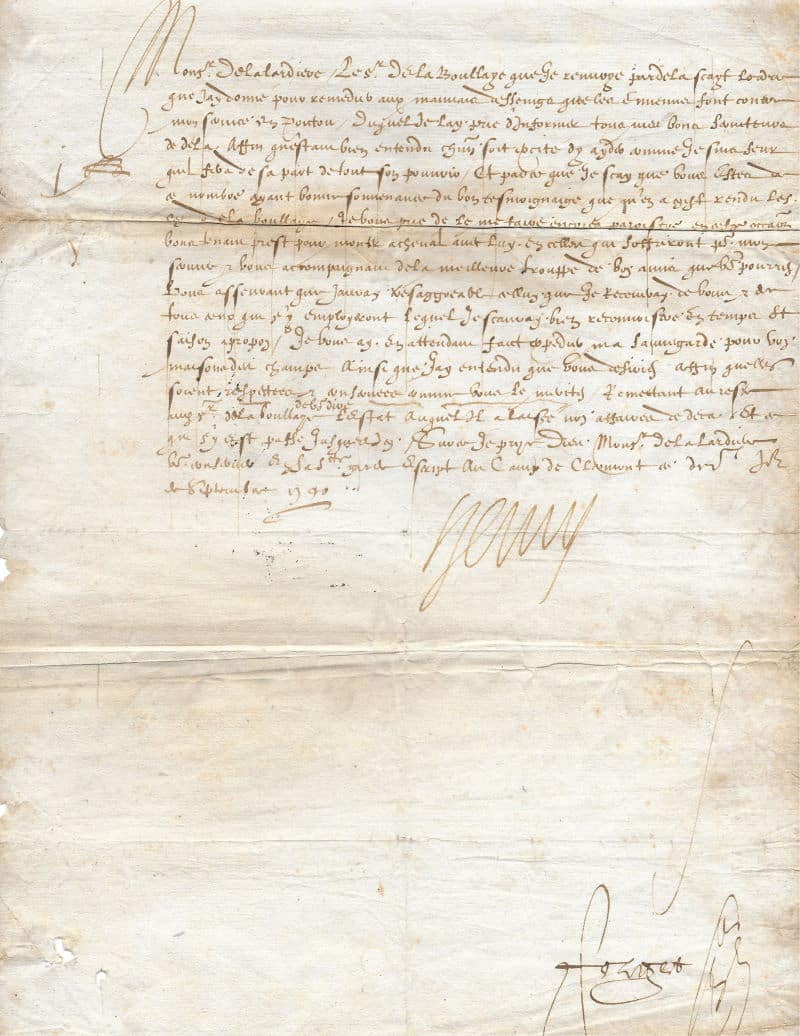 Monsr. Delalardiere, Le sr. de la Boullaye que Je renvoye pardela scayt lordre
que Jay donne pour remedier aux mauvais desseings que les Ennemis font contre
mon service en Poictou, duquel Je lay prie d'Informer tous mes bons serviteurs
de dela, Affin questans bien entendu chun. soit excite dy ayder comme Je suis seur
quil fera de sa part de tout son pouvoir, Et pource que Je scay que vous estes de
ce nombre ayant bonne souvenance du bon tesmoignaige que m'en a cyde. rendu Led.
sr. de la boullaye, Je vous prie de le me faire encores paroistre en ceste occaon
vous tenant prest pour monter a cheval avec luy en celles qui soffriront pr. mon
service & vous accompagnant de la meilleure trouppe de voz amis que vs. pourrez
Vous asseurant que Jauray tres aggreable celluy que Je recevray de vous & de
tous ceux qui s'y employeront Lequel Je scauray bien reconnoistre En temps Et
saison apropos, Je vous ay, En attendant faict expedier ma sauvegarde pour voz
maisons des champs Ainsi que Jay entendu que vous desirez Affin quelles
soient respectees & conservees comme vous le meritez Remettant au reste
aud. sr. de la boullaye de vs. dire Lestat Auquel Il a laisse noz affaires de deca Et ce
qui s'y est passe Jusques Icy, Surce Je prye Dieu, Monsr. Delalardiere
vs. conserver En sa ste. garde Escript Au Camp de Clermont ce der. Jr.
de Septembre 1590
Henry
Forget